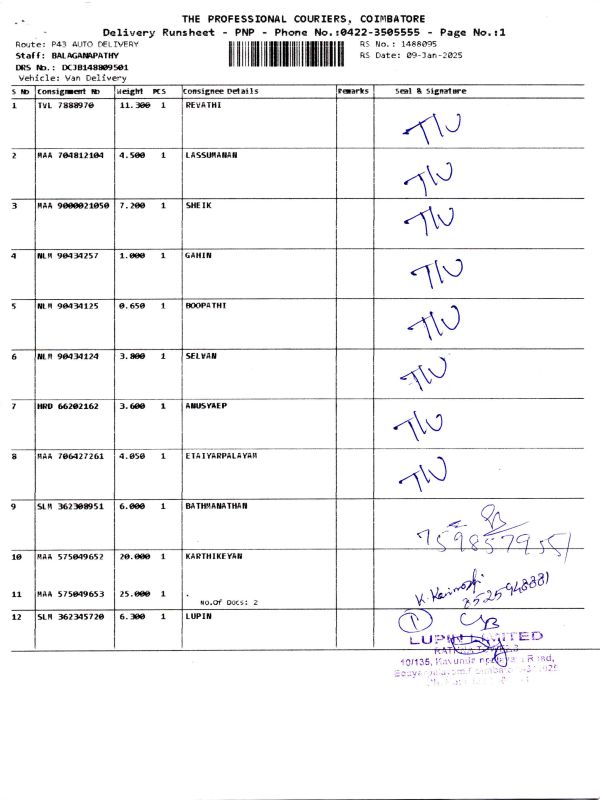 THE PROFESSIONAL COURIERS, COIMBATORE
Delivery Runsheet - PNP - Phone No.:0422-3505555 - Page No.:1
Route: P43 AUTO DELIVERY
RS No.: 1488095
Staff: BALAGANAPATHY
RS Date: 09-Jan-2025
DRS No.: DCJB148809501
Vehicle: Van Delivery
S No Consignment No Weight PCS Consignee Details Remarks Seal & Signature
1 TVL 7888970 11.300 1 REVATHI T/U
2 MAA 704812104 4.500 1 LASSUMANAN T/U
3 MAA 9000021050 7.200 1 SHEIK T/U
4 NLM 90434257 1.000 1 GAHIN T/U
5 NLM 90434125 0.650 1 BOOPATHI T/U
6 NLM 90434124 3.800 1 SELVAN T/U
7 HRD 66202162 3.600 1 ANUSYAEP T/U
8 MAA 706427261 4.050 1 ETAIYARPALAYAM T/U
9 SLM 362308951 6.000 1 BATHMANATHAN
10 MAA 575049652 20.000 1 KARTHIKEYAN
11 MAA 575049653 25.000 1 .
No.Of Docs: 2
12 SLM 362345720 6.300 1 LUPIN
LUPIN LIMITED
10/135,